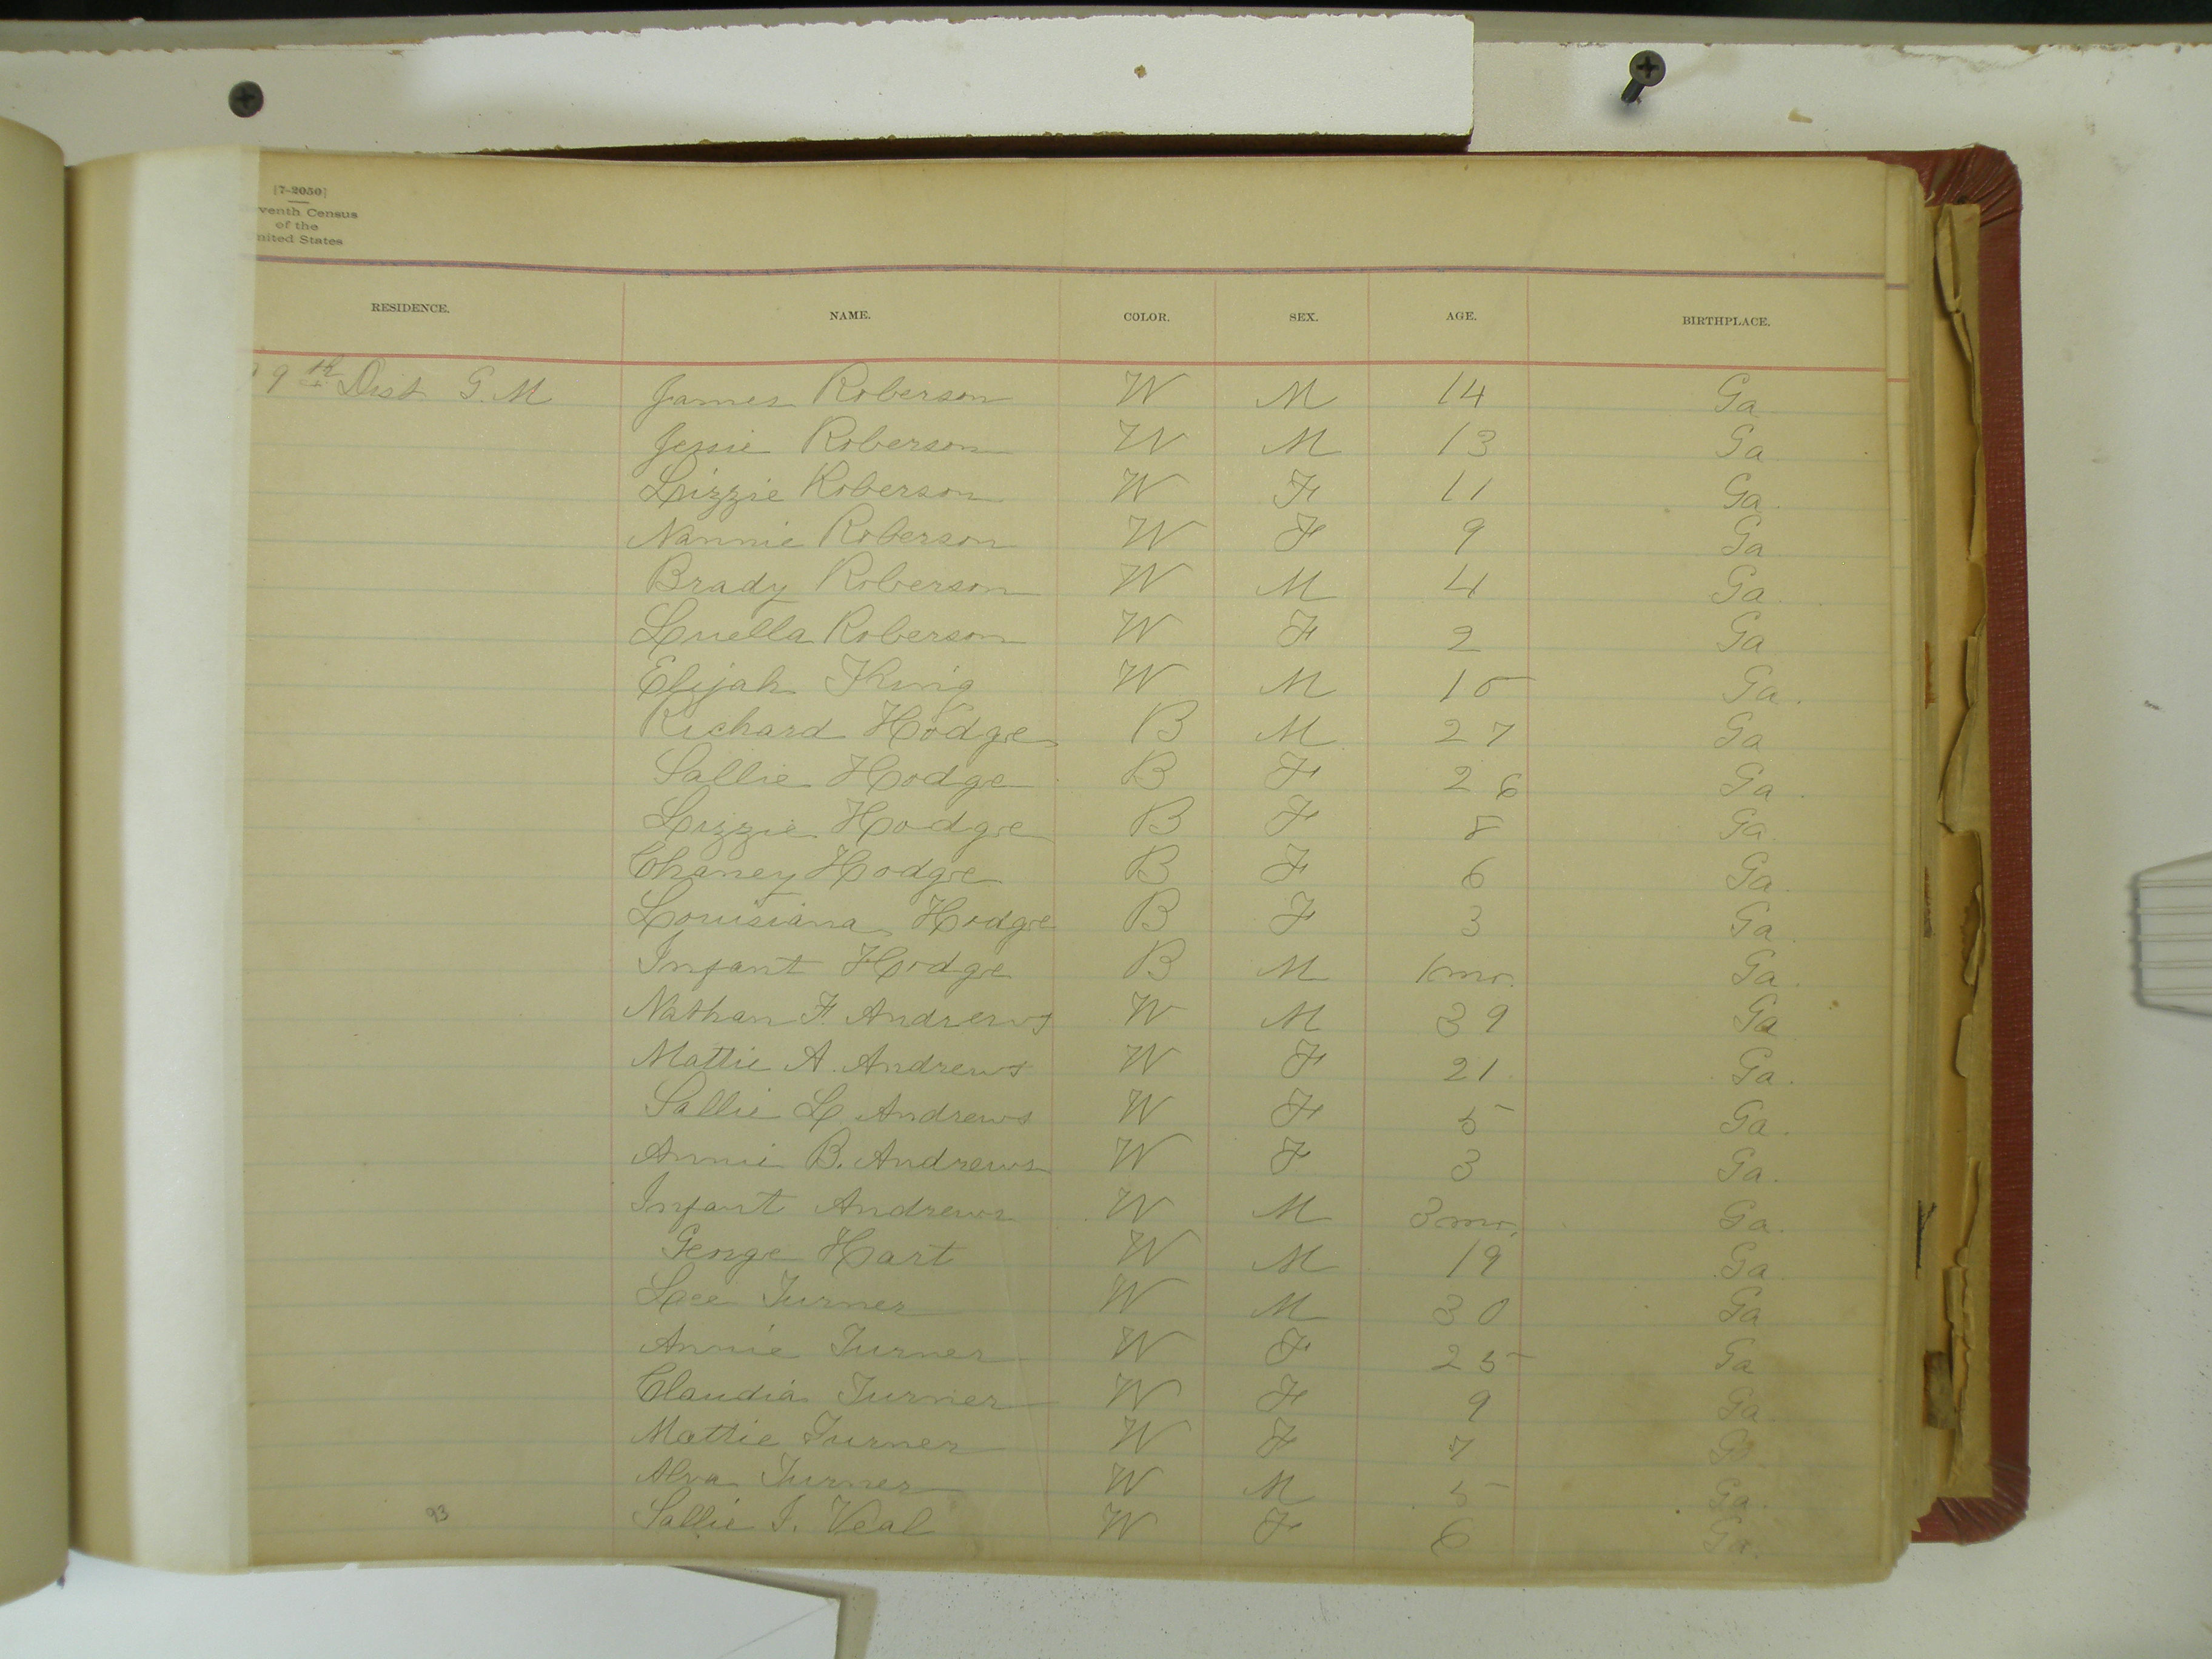 [7-2050]
venth Census
of the
nited States
RESIDENCE. NAME. COLOR. SEX. AGE. BIRTHPLACE.
9th Dist G. M James Roberson W M 14 Ga
Jessie Roberson W M 13 Ga
Lizzie Roberson W F 11 Ga.
Nannie Roberson W F 9 Ga
Brady Roberson W M 4 Ga
Luella Roberson W F 2 Ga
Elijah King W M Ga.
Richard Hodge B M 27 Ga
Sallie Hodge B F 26 Ga.
Lizzie Hodge B F 8 Ga.
Chaney Hodge B F 6 Ga.
Louisiana Hodge B F 3 Ga
Infant Hodge B M 1 mo. Ga.
Nathan F. Andrews W M 39 Ga
Mattie A. Andrews W F 21 Ga.
Sallie L Andrews W F 5 Ga.
Annie B. Andrews W F 3 Ga.
Infant Andrews W M 3 mo. Ga.
George Hart W M 19 Ga
Lee Turner W M 30 Ga
Annie Turner W F 25 Ga
Claudia Turner W F 9 Ga
Mattie Turner W F 7 Ga.
Alva Turner W M 5 Ga.
93 Sallie I. Veal W F 6 Ga.